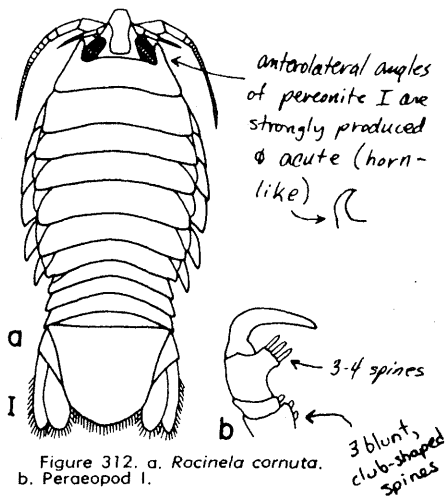 anterolateral angles
of pereonite I are
strongly produced
& acute (horn-
like)
a
I
b
3-4 spines
3 blunt,
club-shaped
spines
Figure 312. a. Rocinela cornuta.
b. Peraeopod I.